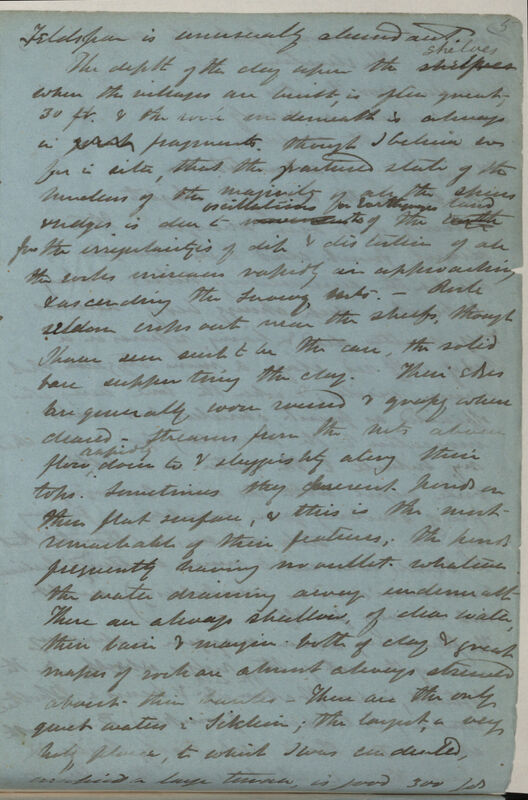 5
Feldspar is unusually abundant.
The depth of the clay upon the shelves
when the villages are built, is often great,
30 ft. & the rock underneath is always
in fragments, though I believe so
far in situ, that the fractured state of the
nucleus of the majority of all the spurs
& ridges is due to oscillations or earthquakes of the land
for the irregularities of dip & distortion of all
the rocks increases rapidly in approaching
& ascending the Snowy Mts. — Rock
seldom crops out near the shelfs, though
I have seen such to be the case, the solid
base supporting the clay. Their sides
are generally worn round & grassy when
cleared — Streams from the mts above
flow rapidly down to & sluggishly along their
tops. Sometimes they present ponds on
their flat surface, & this is the most
remarkable of their features; the ponds
frequently having no outlet whatever
the water draining away underneath
These are always shallow, of clear water,
their basin & margin both of clay & great
masses of rock are almost always strewed
about their banks — These are the only
quiet waters in Sikkim; the largest, a very
holy place, to which I was conducted,
a large terrace, is good 300 yds